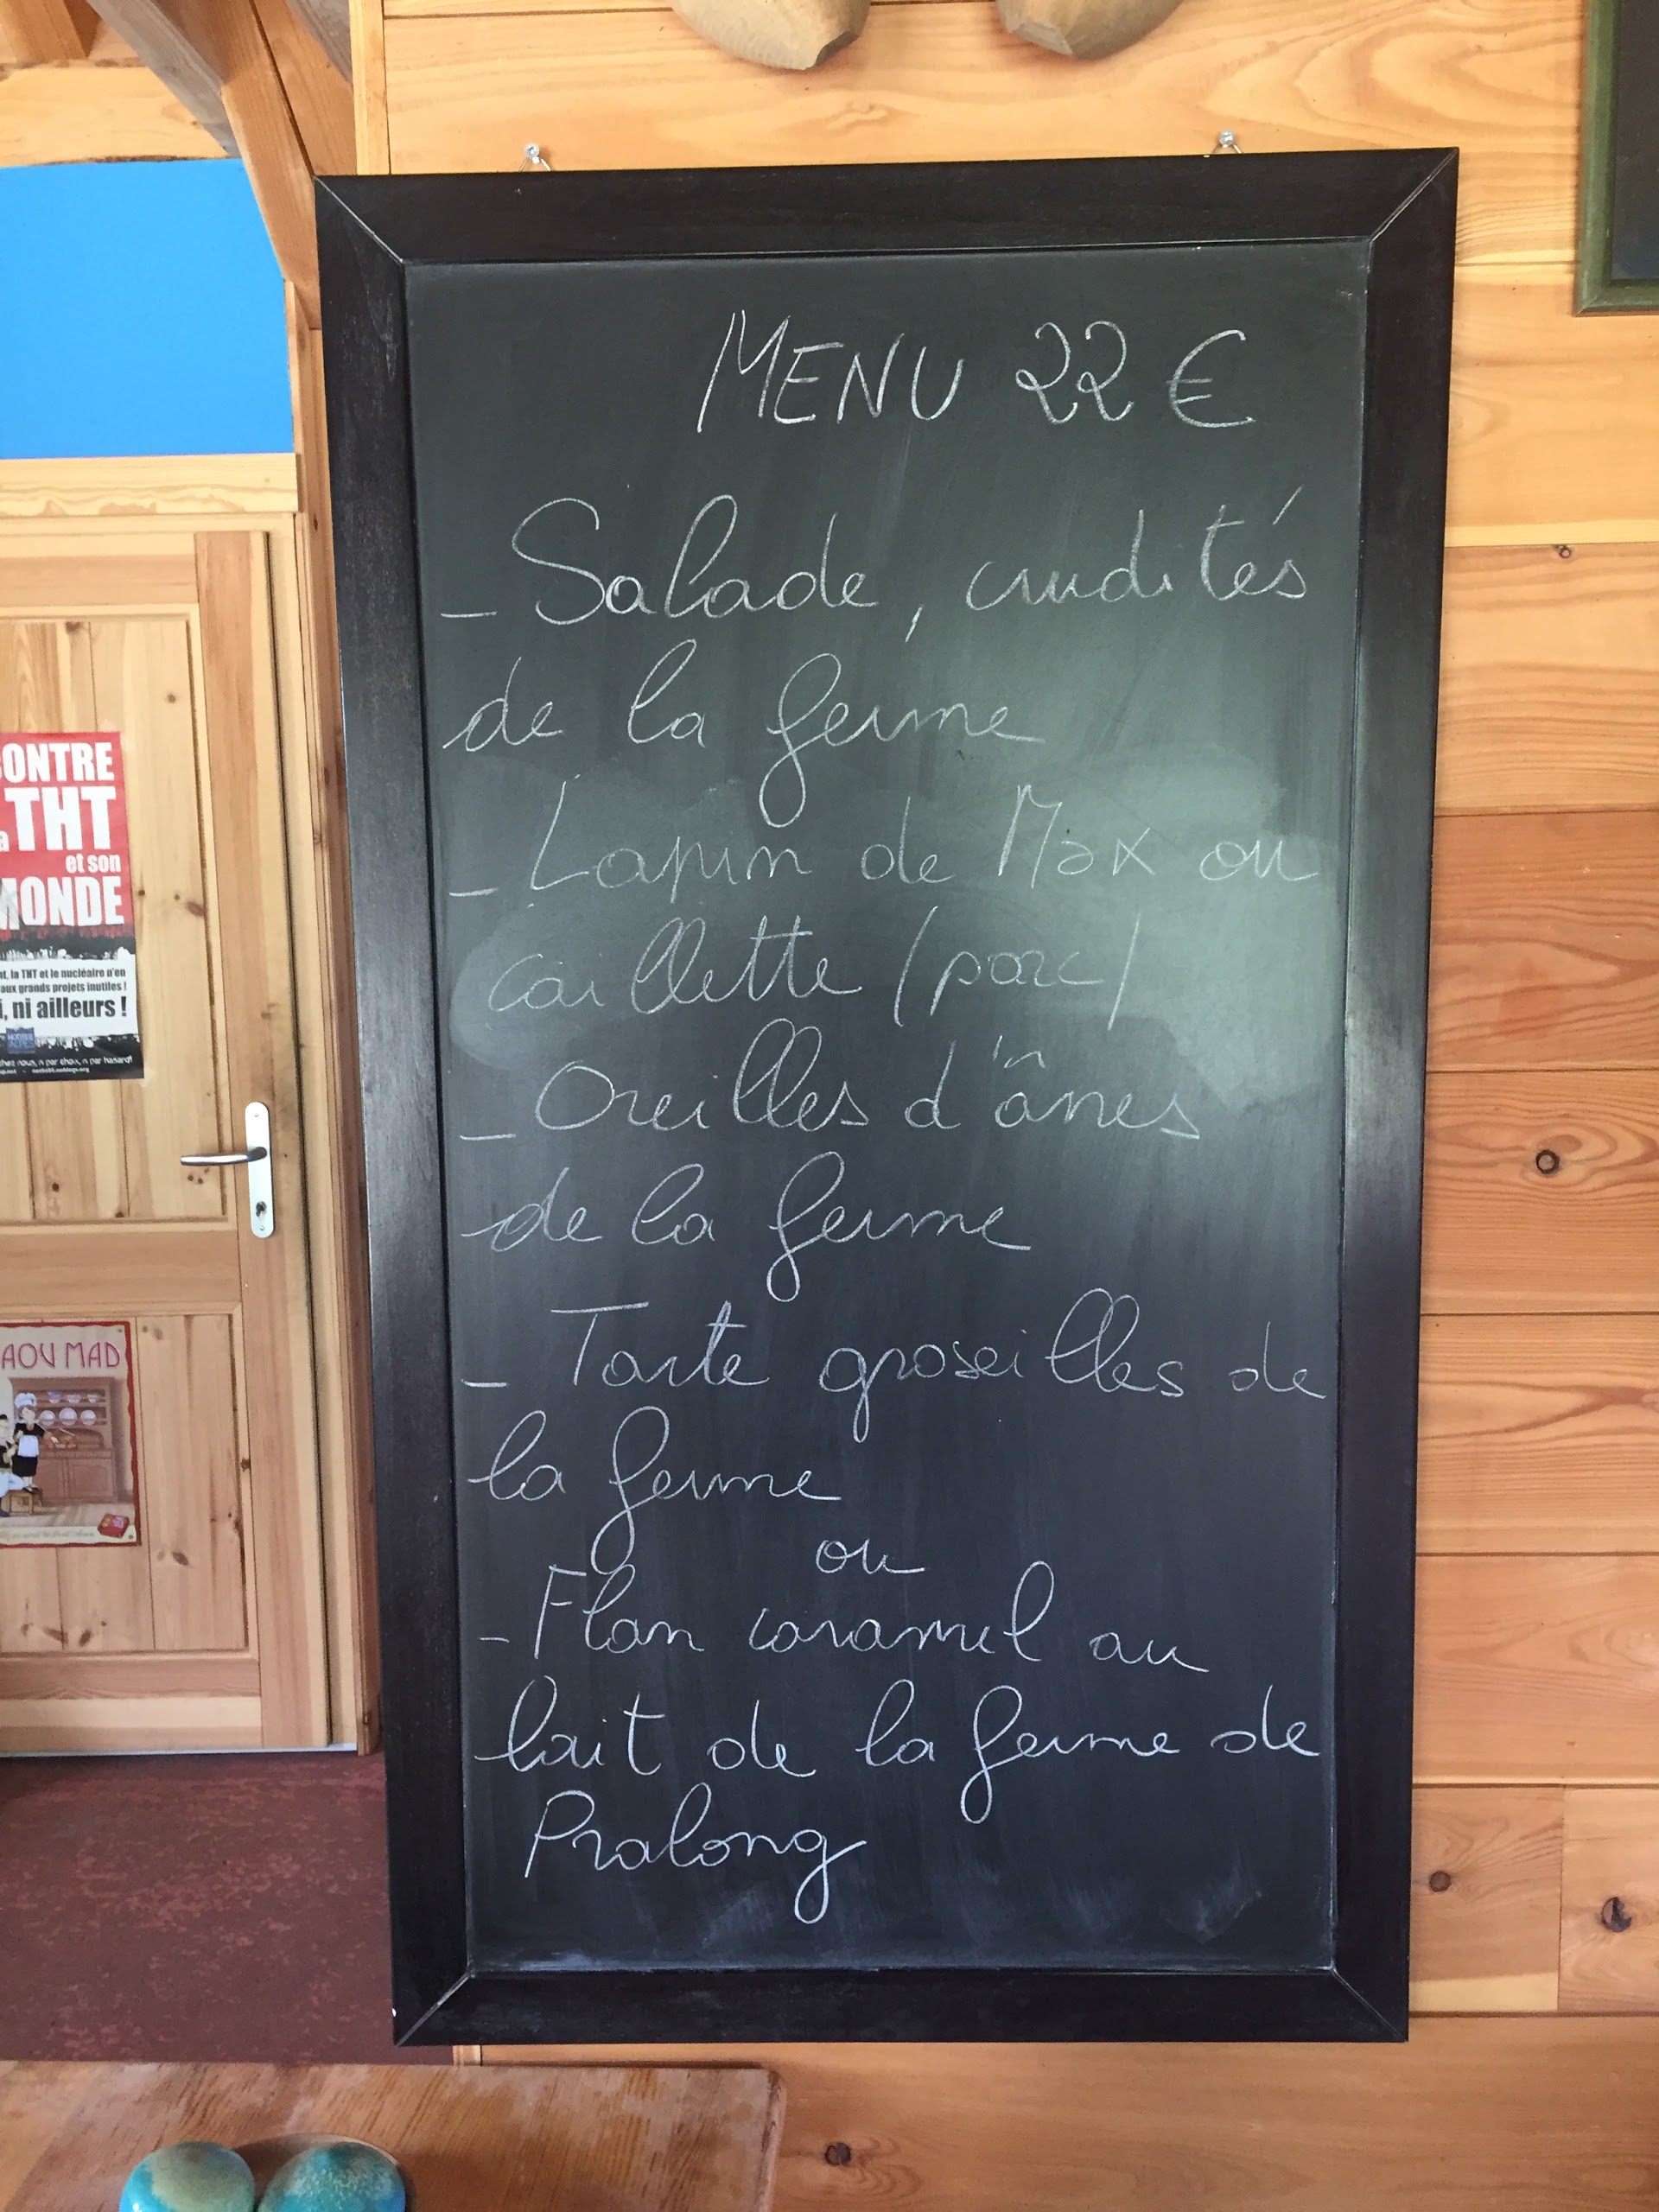 MENU 22 €
- Salade, crudités
de la ferme
- Lapin de Max ou
caillette (porc)
- Oreilles d'ânes
de la ferme
- Tarte groseilles de
la ferme
ou
- Flan caramel au
lait de la ferme de
Pralong
CONTRE
la THT
et son
MONDE
la THT et le nucléaire n'en
aux grands projets inutiles !
ni ailleurs !
AOU MAD